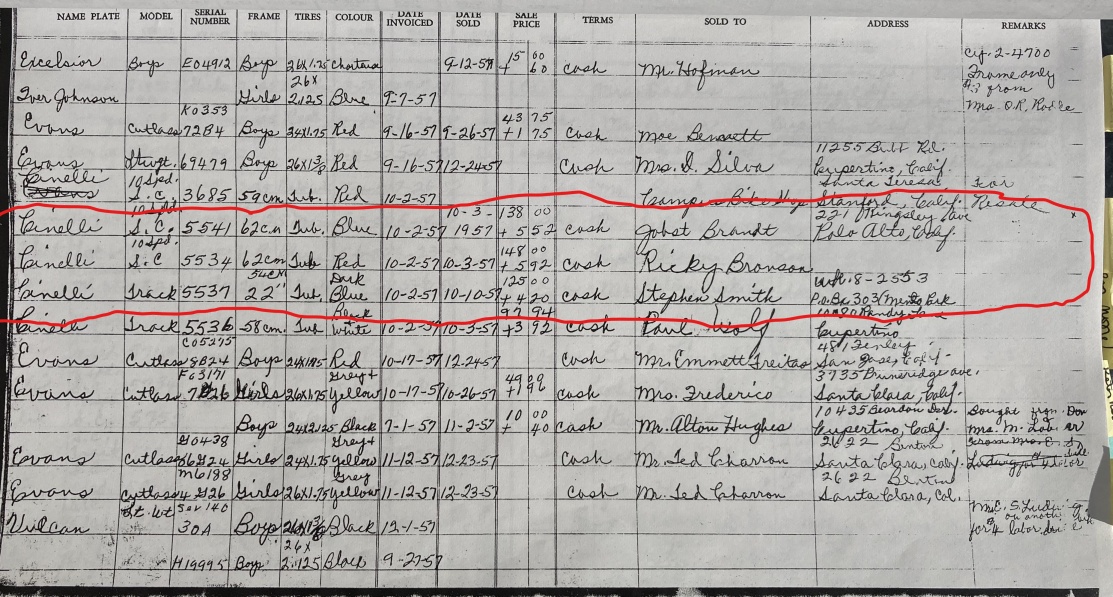 NAME PLATE MODEL SERIAL NUMBER FRAME TIRES COLOUR DATE INVOICED DATE SOLD SALE PRICE TERMS SOLD TO ADDRESS REMARKS
Excelsior Boys E04912 Boys 26X1.75 9-12-57 15 00 + 60 cash Mr. Hofman Frame only
Iver Johnson Girls 26X 2.125 Blue 9-7-57 from Mrs. O.R.
Evans Cutlass K0353 7284 Boys 24X1.75 Red 9-16-57 9-26-57 43 75 +1 75 cash Moe Bennett
Evans 69479 Boys 26X1 3/8 Red 9-16-57 12-24-57 cash Mrs. D. Silva 11255 Rd. Cupertino, Calif.
Cinelli 10 Spd. S.C. 3685 59cm Tub. Red 10-2-57 Campus Bike Santa Teresa Stanford, Calif. For Resale
Cinelli 10 Spd. S.C. 5541 62cm Tub. Blue 10-2-57 10-3-1957 138 00 + 5 52 cash Jobst Brandt 221 Kingsley Ave Palo Alto, Calif.
Cinelli 10 Spd. S.C 5534 62cm Tub Red 10-2-57 10-3-57 148 00 + 5 92 cash Ricky Bronson
Cinelli Track 5537 54cm 22" Tub. Dark Blue 10-2-57 10-10-57 125 00 + 4 20 cash Stephen Smith 8-2553 P.O. Bx 303 Menlo Park
Cinelli Track 5536 58cm. Tub Black + White 10-2-57 10-3-57 97 94 +3 92 cash Paul Wolf Cupertino
Evans Cutlass C05275 8824 Boys 24X1.75 Red 10-17-57 12-24-57 cash Mr. Emmett Freitas 481 San Jose, Calif.
Evans Cutlass F63171 Girls 26X1.75 Grey + Yellow 10-17-57 10-26-57 49 00 +1 96 cash Mrs. Frederico 3735 Pruneridge ave. Santa Clara, Calif.
Boys 24X2.125 Black 7-1-57 11-2-57 10 00 + 40 cash Mr. Alton Hughes 10435 Cupertino, Calif. Bought from Mrs. M.
Evans Cutlass G0438 Girls 24X1.75 Grey + Yellow 11-12-57 12-23-57 cash Mr. Ted Charron 2622 Benton Santa Clara, Calif.
Evans Cutlass M6188 Girls 26X1.75 Grey Yellow 11-12-57 12-23-57 cash Mr. Ted Charron 2622 Benton Santa Clara, Cal.
Vulcan Lt. Wt 30A Boys 26X1 3/8 Black 12-1-57 for labor
H19995 Boys 26X 2.125 Black 9-27-57